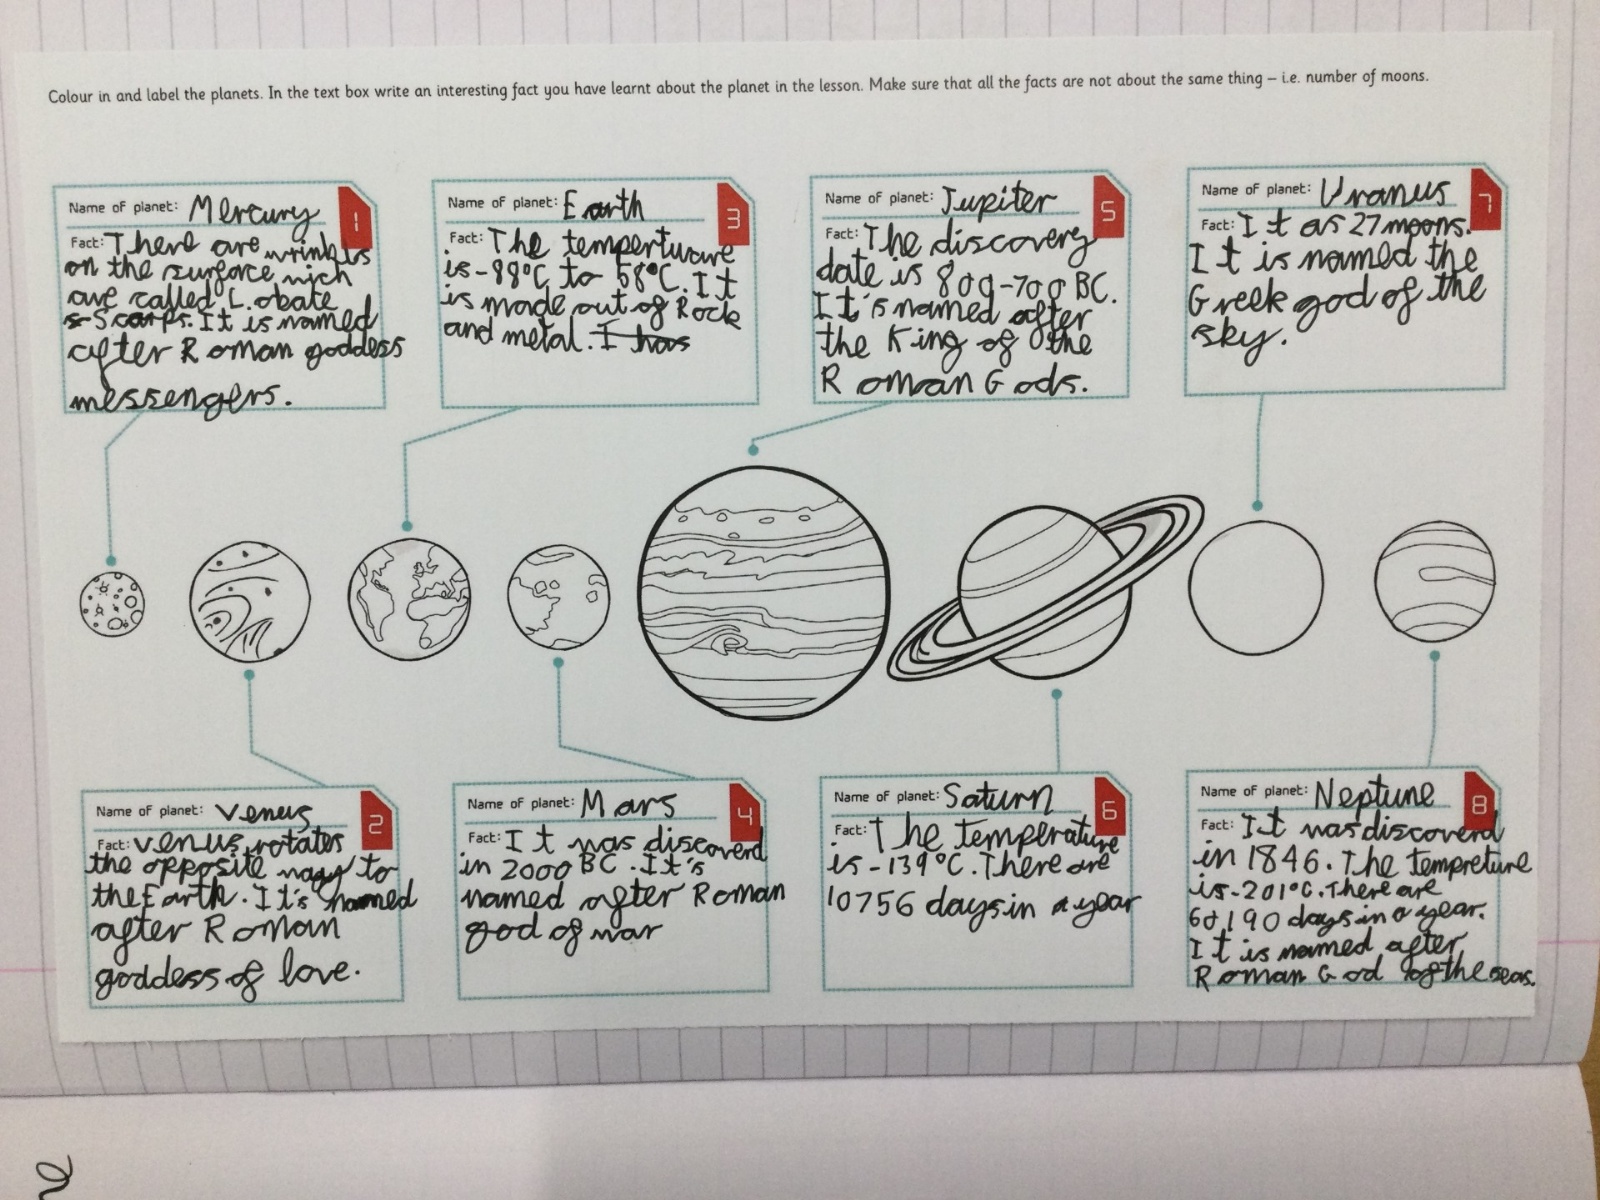 Colour in and label the planets. In the text box write an interesting fact you have learnt about the planet in the lesson. Make sure that all the facts are not about the same thing – i.e. number of moons.
Name of planet: Mercury
1
Fact: There are wrinkls
on the surface wich
are called L. obate
Scarps. It is named
after Roman goddess
messengers.
Name of planet: Earth
3
Fact: The temperturare
is -88°C to 58°C. It
is made out of Rock
and metal. I has
Name of planet: Jupiter
5
Fact: The discovery
date is 800-700 BC.
It's named after
the King of the
Roman Gods.
Name of planet: Uranus
7
Fact: It as 27 moons.
It is named the
Greek god of the
sky.
Name of planet: Venus
2
Fact: Venus rotates
the opposite way to
the Earth. It's named
after Roman
goddess of love.
Name of planet: Mars
4
Fact: It was discoverd
in 2000 BC. It's
named after Roman
god of war
Name of planet: Saturn
6
Fact: The temperature
is -139°C. There are
10756 days in a year
Name of planet: Neptune
8
Fact: It was discoverd
in 1846. The tempreture
is -201°C. There are
60,190 days in a year.
It is named after
Roman God of the seas.